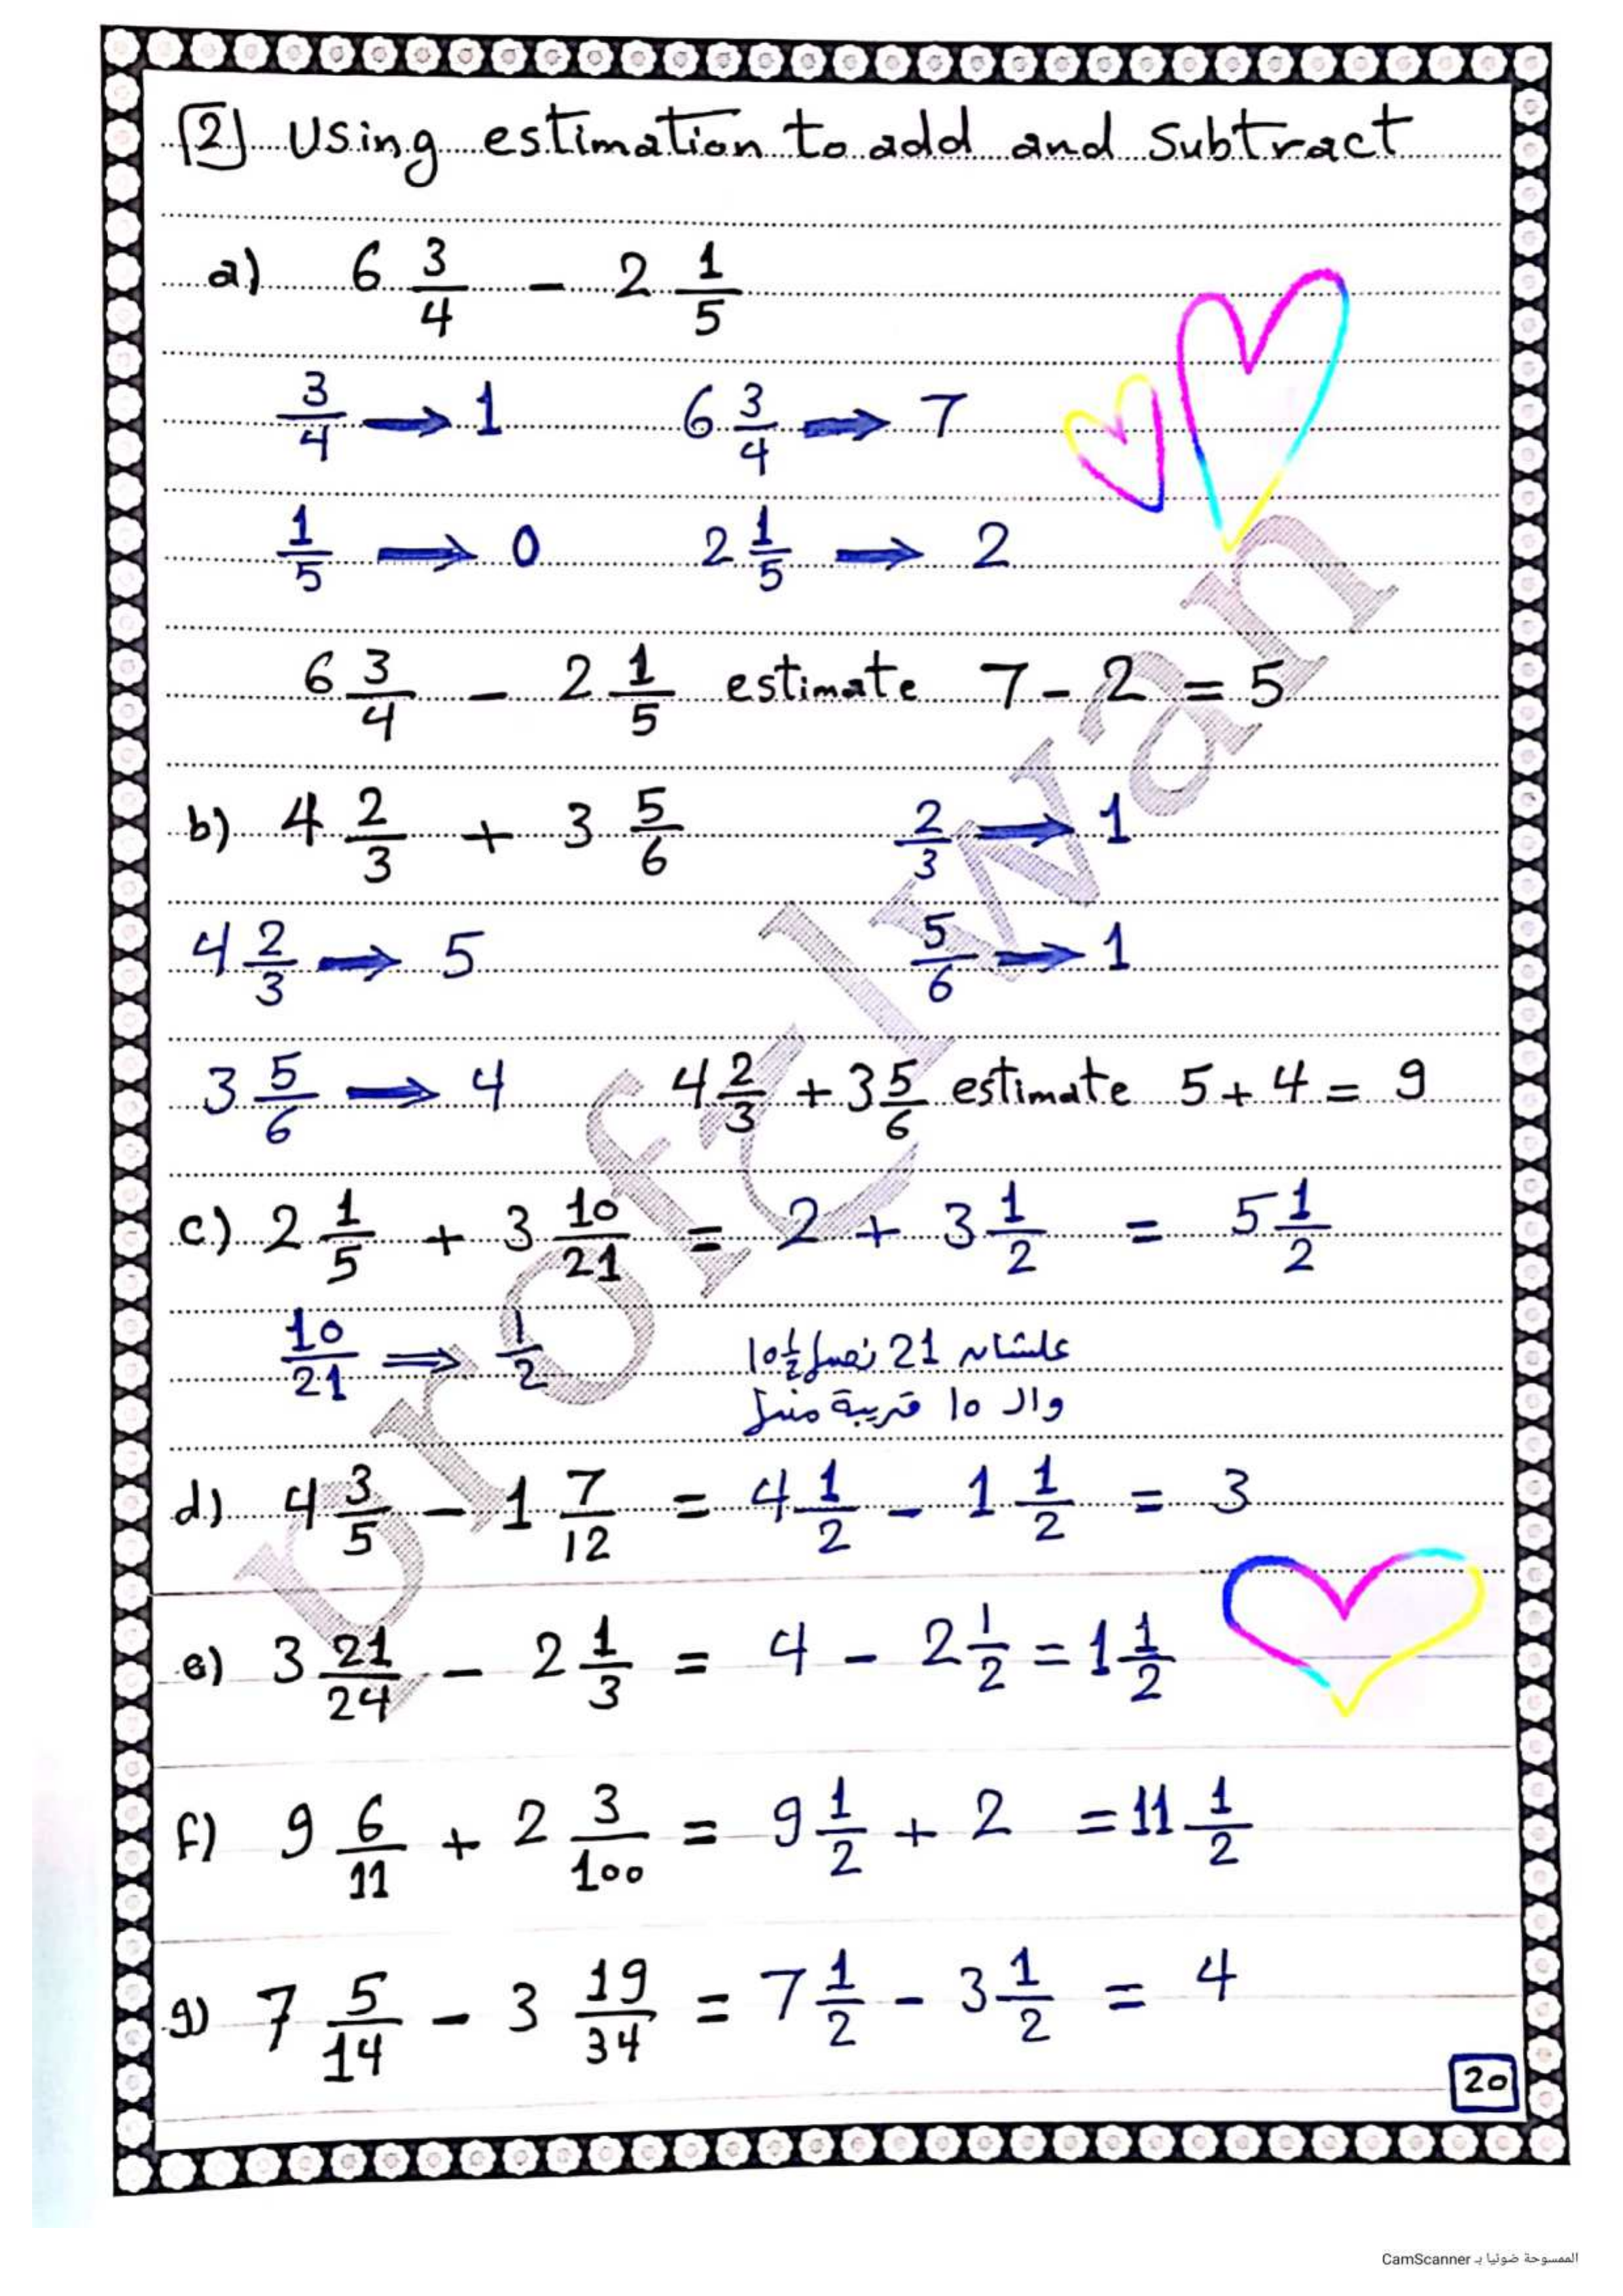 [2] Using estimation to add and subtract
a) 6 3/4 - 2 1/5
3/4 → 1 6 3/4 → 7
1/5 → 0 2 1/5 → 2
6 3/4 - 2 1/5 estimate 7 - 2 = 5
b) 4 2/3 + 3 5/6 2/3 → 1
4 2/3 → 5 5/6 → 1
3 5/6 → 4 4 2/3 + 3 5/6 estimate 5 + 4 = 9
c) 2 1/5 + 3 10/21 = 2 + 3 1/2 = 5 1/2
10/21 ⇒ 1/2 علشان 21 نصها 10 1/2
وال 10 قريبة منها
d) 4 3/5 - 1 7/12 = 4 1/2 - 1 1/2 = 3
e) 3 21/24 - 2 1/3 = 4 - 2 1/2 = 1 1/2
f) 9 6/11 + 2 3/100 = 9 1/2 + 2 = 11 1/2
g) 7 5/14 - 3 19/34 = 7 1/2 - 3 1/2 = 4
20
prof Elwan
الممسوحة ضوئيا بـ CamScanner